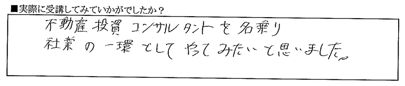 ■実際に受講してみていかがでしたか？
不動産投資コンサルタントを名乗り
社業の一環としてやってみたいと思いました。